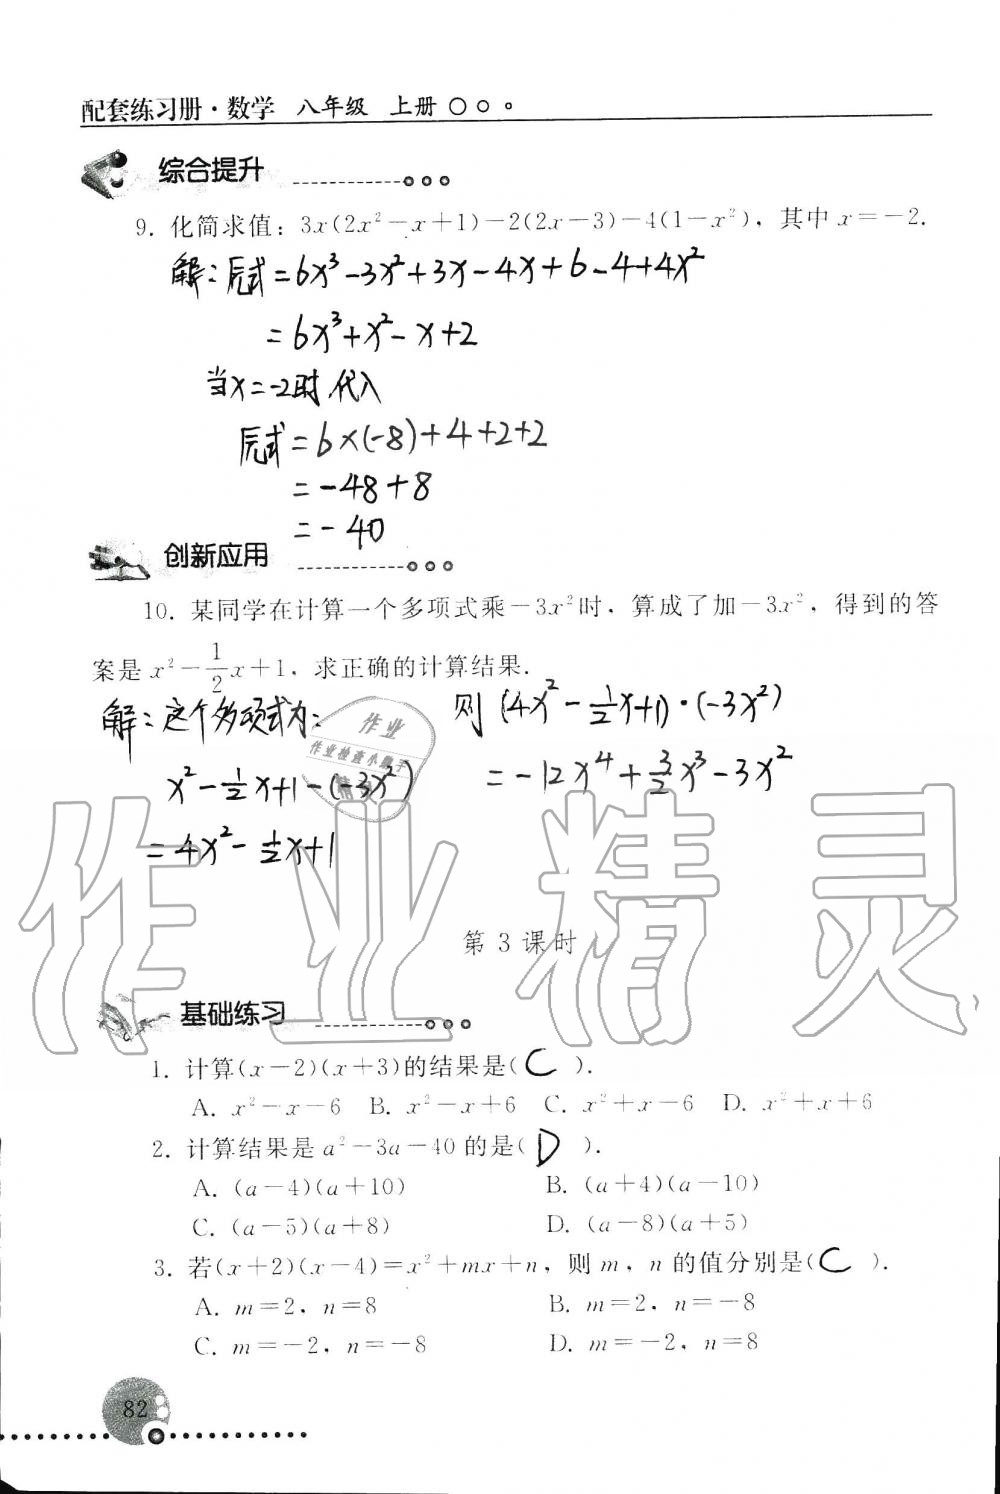 配套练习册·数学 八年级 上册
综合提升
9. 化简求值：3x(2x²－x＋1)－2(2x－3)－4(1－x²)，其中 x＝－2.
解：原式＝6x³－3x²＋3x－4x＋6－4＋4x²
＝6x³＋x²－x＋2
当x＝－2时 代入
原式＝6×(－8)＋4＋2＋2
＝－48＋8
＝－40
创新应用
10. 某同学在计算一个多项式乘－3x²时，算成了加－3x²，得到的答
案是 x²－1/2x＋1，求正确的计算结果.
解：这个多项式为：
x²－1/2x＋1－(－3x²)
＝4x²－1/2x＋1
则 (4x²－1/2x＋1)·(－3x²)
＝－12x⁴＋3/2x³－3x²
作业
作业检查小助手
精灵
作业精灵
第 3 课时
基础练习
1. 计算(x－2)(x＋3)的结果是( C ).
A. x²－x－6 B. x²－x＋6 C. x²＋x－6 D. x²＋x＋6
2. 计算结果是 a²－3a－40 的是( D ).
A. (a－4)(a＋10) B. (a＋4)(a－10)
C. (a－5)(a＋8) D. (a－8)(a＋5)
3. 若(x＋2)(x－4)＝x²＋mx＋n，则 m，n 的值分别是( C ).
A. m＝2，n＝8 B. m＝2，n＝－8
C. m＝－2，n＝－8 D. m＝－2，n＝8
82